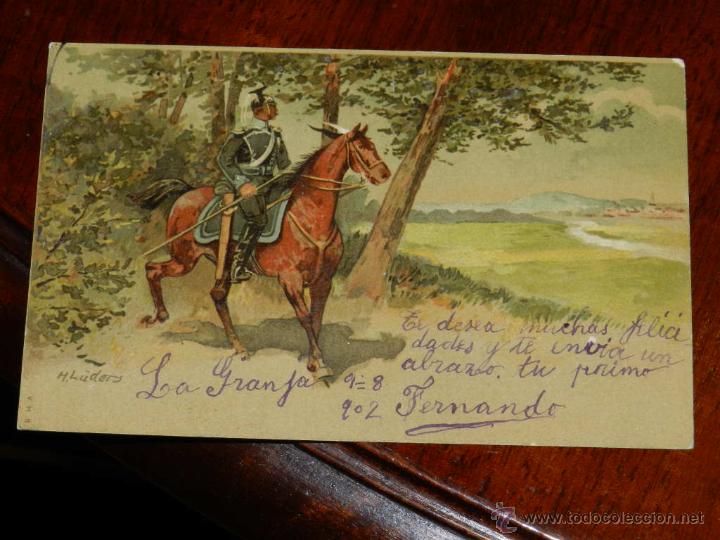 H. Lüders
La Granja 9=8
902
Te desea muchas felici
dades y te invia un
abrazo. tu primo
Fernando
© www.todocoleccion.net